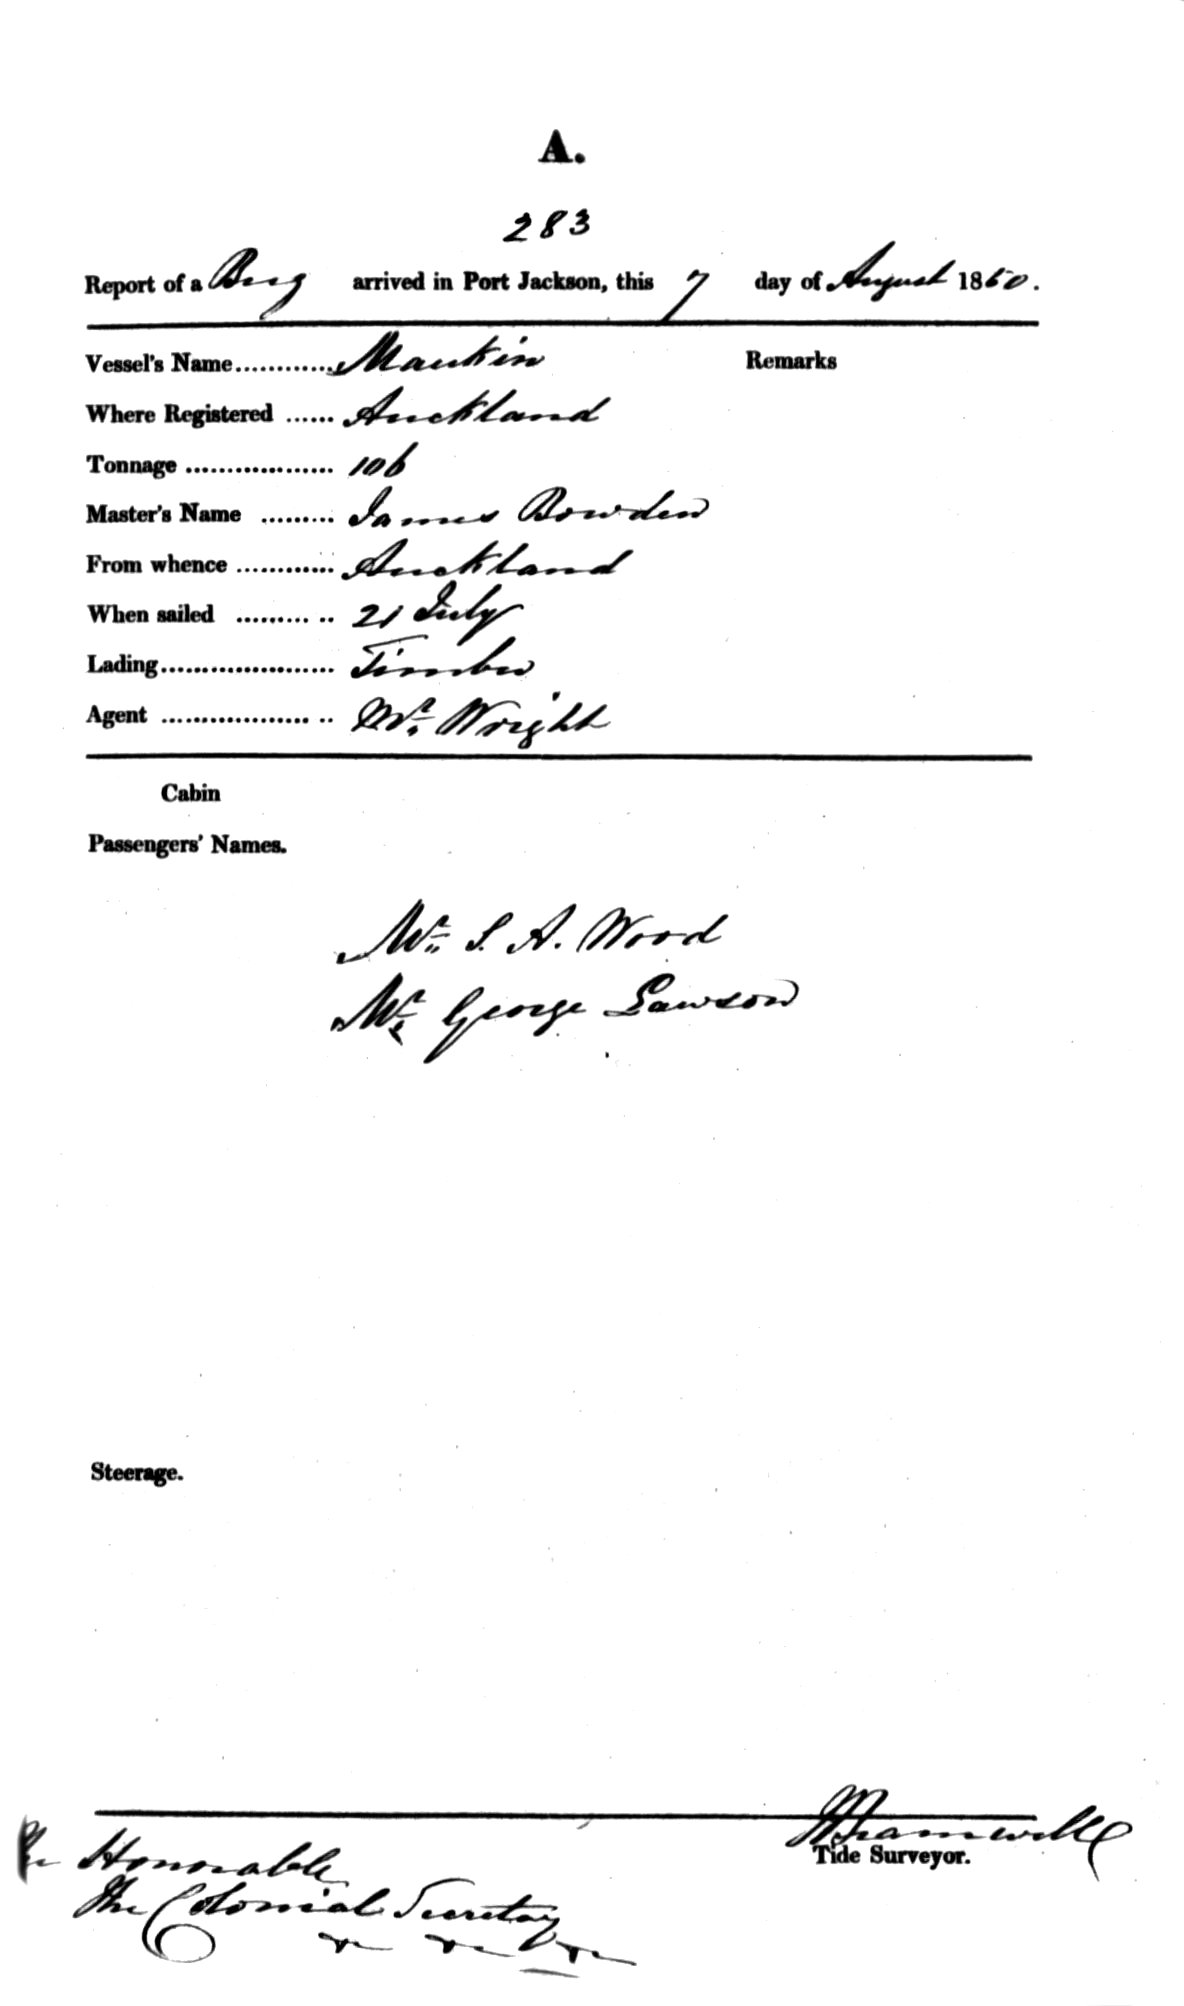 A.
283
Report of a Brig arrived in Port Jackson, this 7 day of August 1860.
Vessel's Name............ Maukin Remarks
Where Registered ...... Auckland
Tonnage .................. 106
Master's Name ......... James Bowden
From whence ............ Auckland
When sailed ......... .. 21 July
Lading..................... Timber
Agent .................. .. Mr. Wright
Cabin
Passengers' Names.
Mr. S. A. Wood
Mr. George Lawson
Steerage.
Tide Surveyor.
The Honorable
The Colonial Secretary